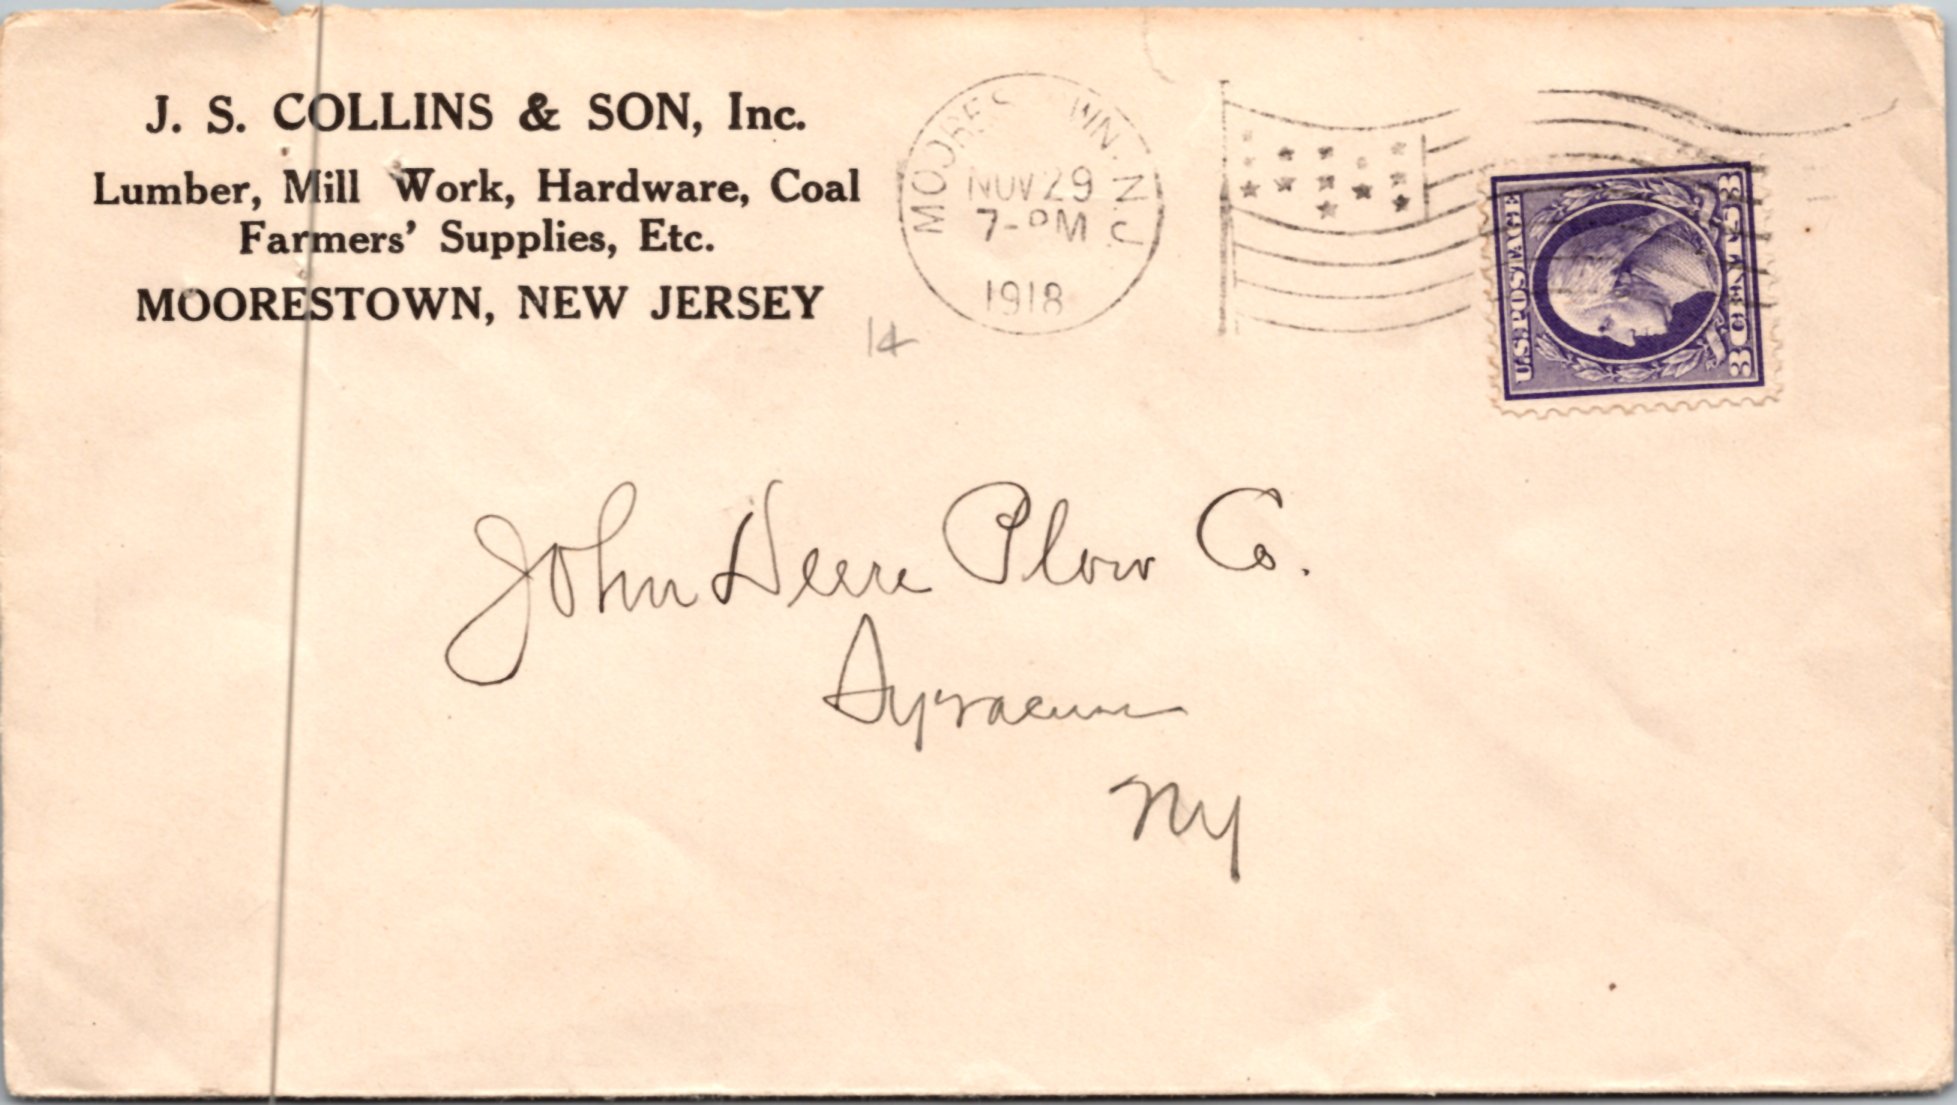 J. S. COLLINS & SON, Inc.
Lumber, Mill Work, Hardware, Coal
Farmers' Supplies, Etc.
MOORESTOWN, NEW JERSEY
14
MOORESTOWN. N.J.
NOV 29
7-PM
1918
U.S. POSTAGE
3 CENTS 3
John Deere Plow Co.
Syracuse
NY